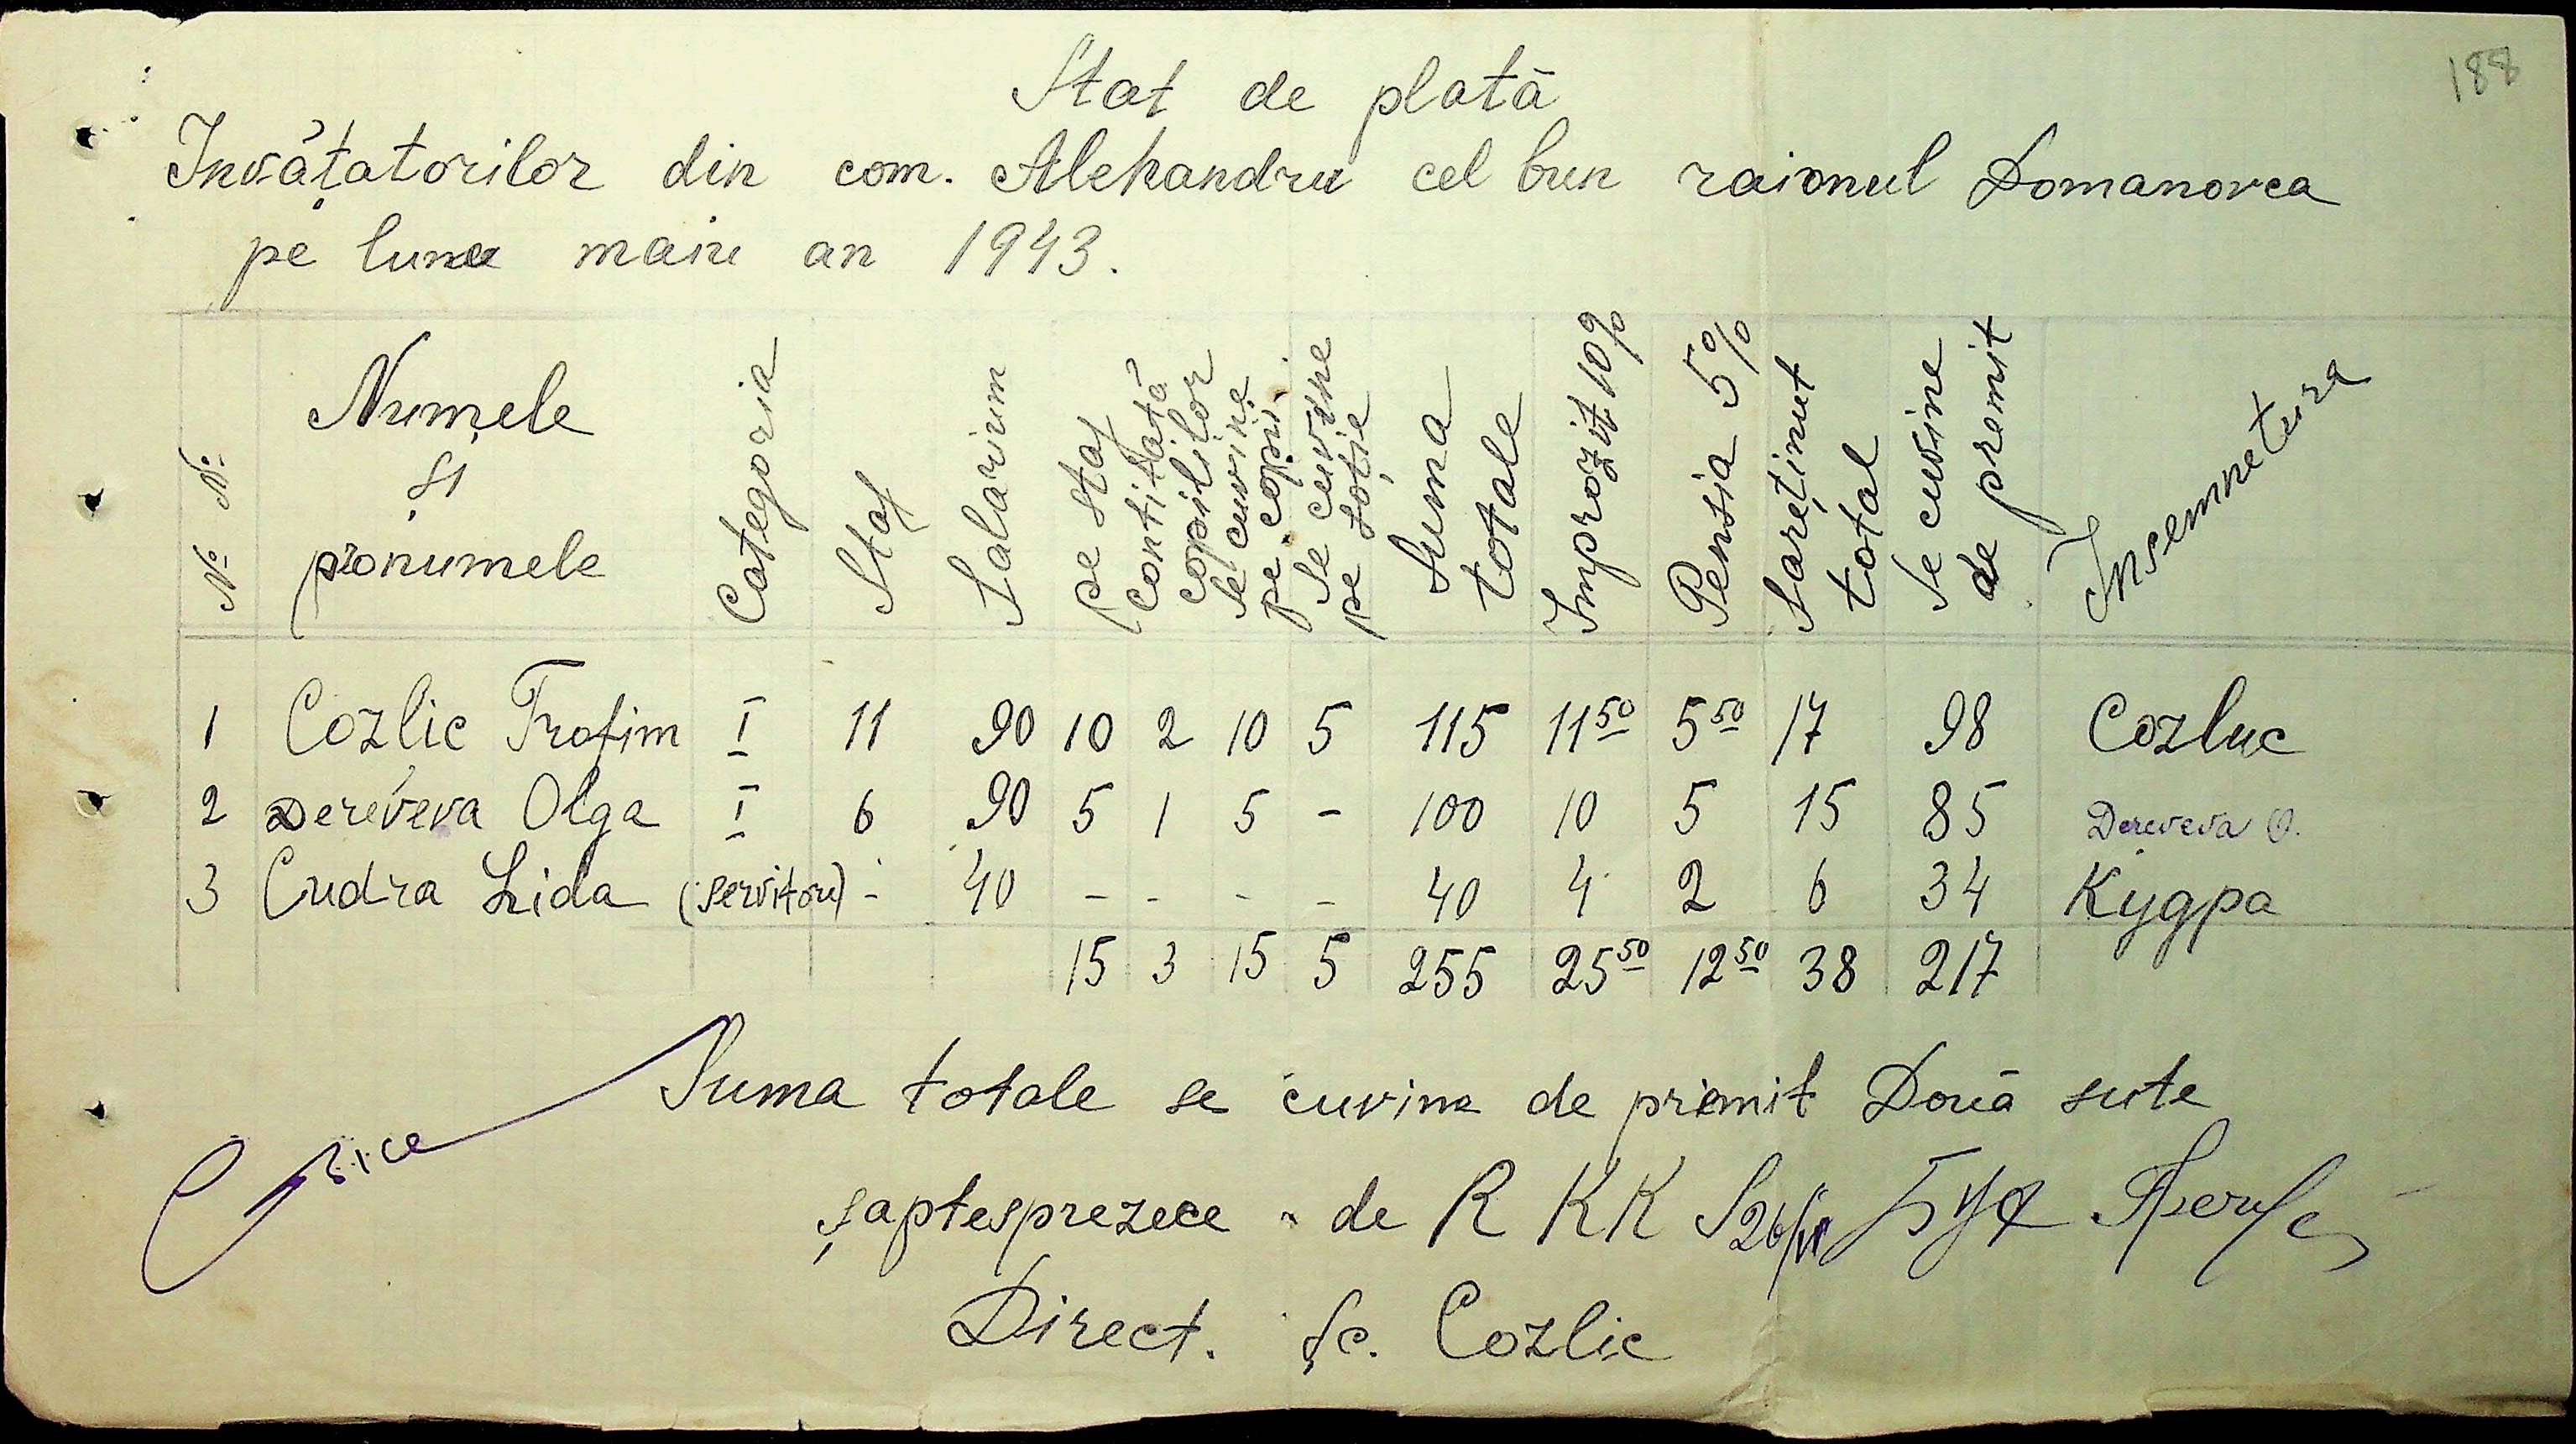 188
Stat de plată
Invăţatorilor din com. Alehandru cel bun raionul Domanovca
pe luna maiu an 1943.
№ № Numele şi pronumele Categoria Staf Salarium pe staf contitatā copiilor se cuvine pe copii Se cuvine pe soţie Suma totale Improzit 10% Pensia 5% Sareţinut total Se cuvine de premit Insemnetura
1 Cozlic Trofim I 11 90 10 2 10 5 115 11 50 5 50 17 98 Cozluc
2 Dereveva Olga I 6 90 5 1 5 - 100 10 5 15 85 Dereveva O.
3 Cudra Lida (servitoru) - 40 - - - - 40 4 2 6 34 Кудра
15 3 15 5 255 25 50 12 50 38 217
Suma totale se cuvine de priemit Două sute
şaptesprezece de R K K S 26/VI
Direct. şc. Cozlic